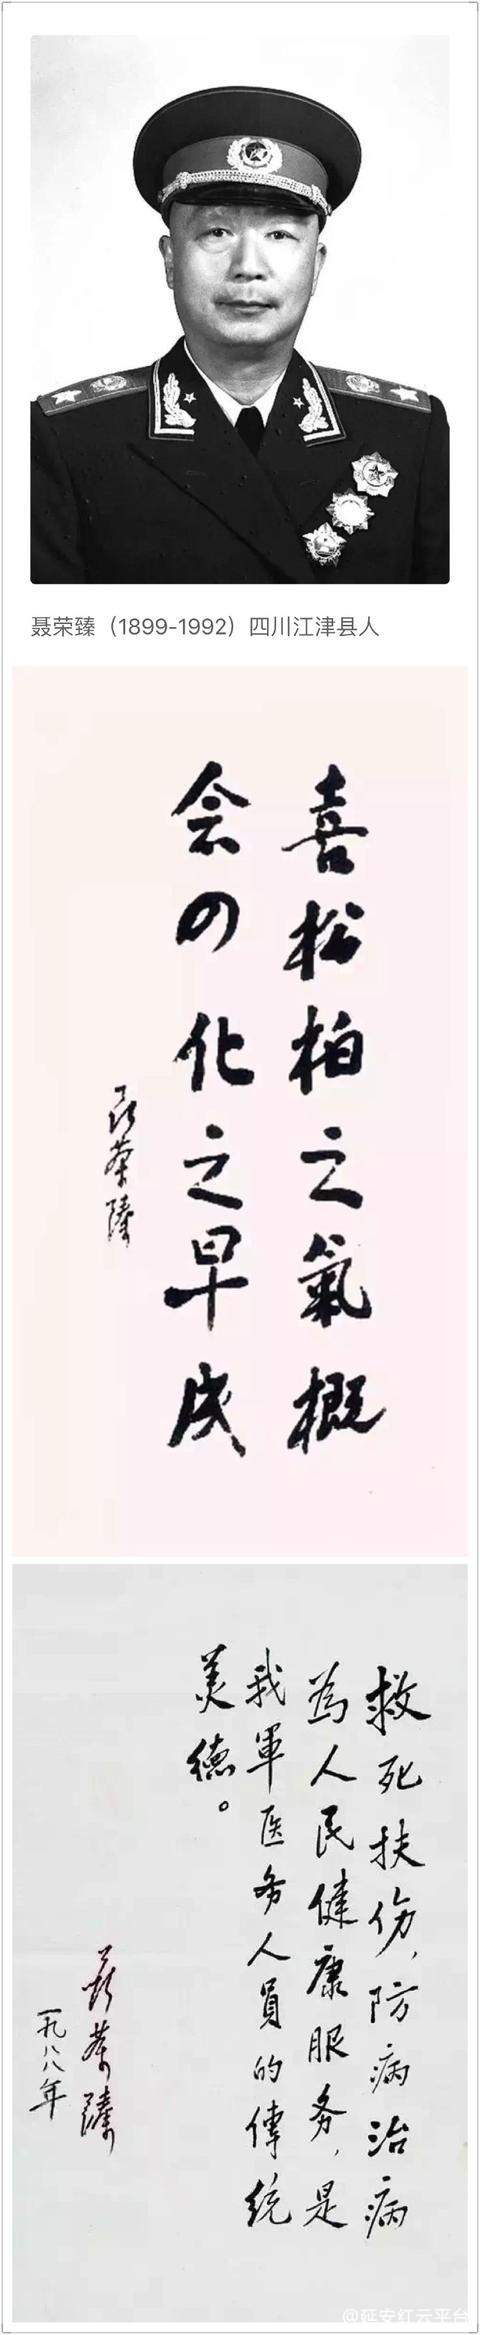 聂荣臻（1899-1992）四川江津县人
喜松柏之氣概
会四化之早成
聂荣臻
救死扶伤，防病治病
為人民健康服务，是
我軍医务人員的傳統
美德。
聂荣臻
一九八八年
@延安红云平台